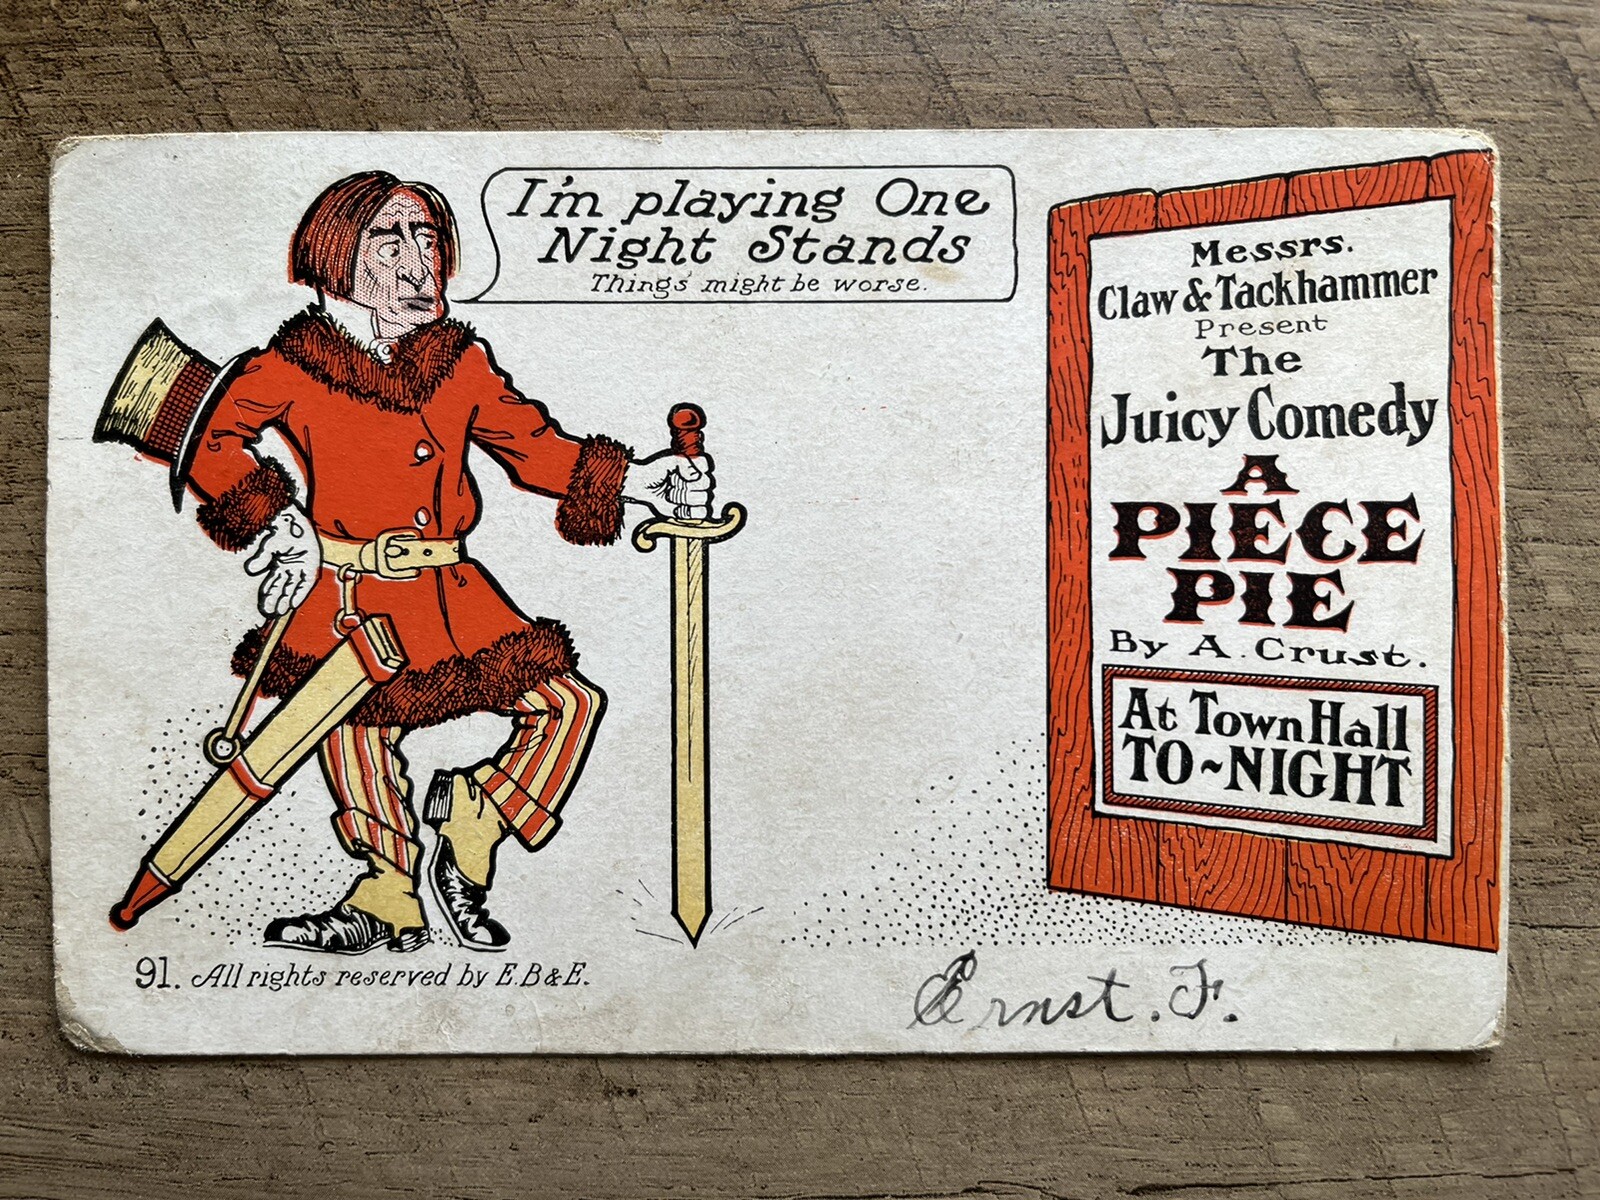 I'm playing One
Night Stands
Things might be worse.
Messrs.
Claw & Tackhammer
Present
The
Juicy Comedy
A
PIECE
PIE
By A. Crust.
At Town Hall
TO~NIGHT
91. All rights reserved by E.B & E.
Ernst. F.